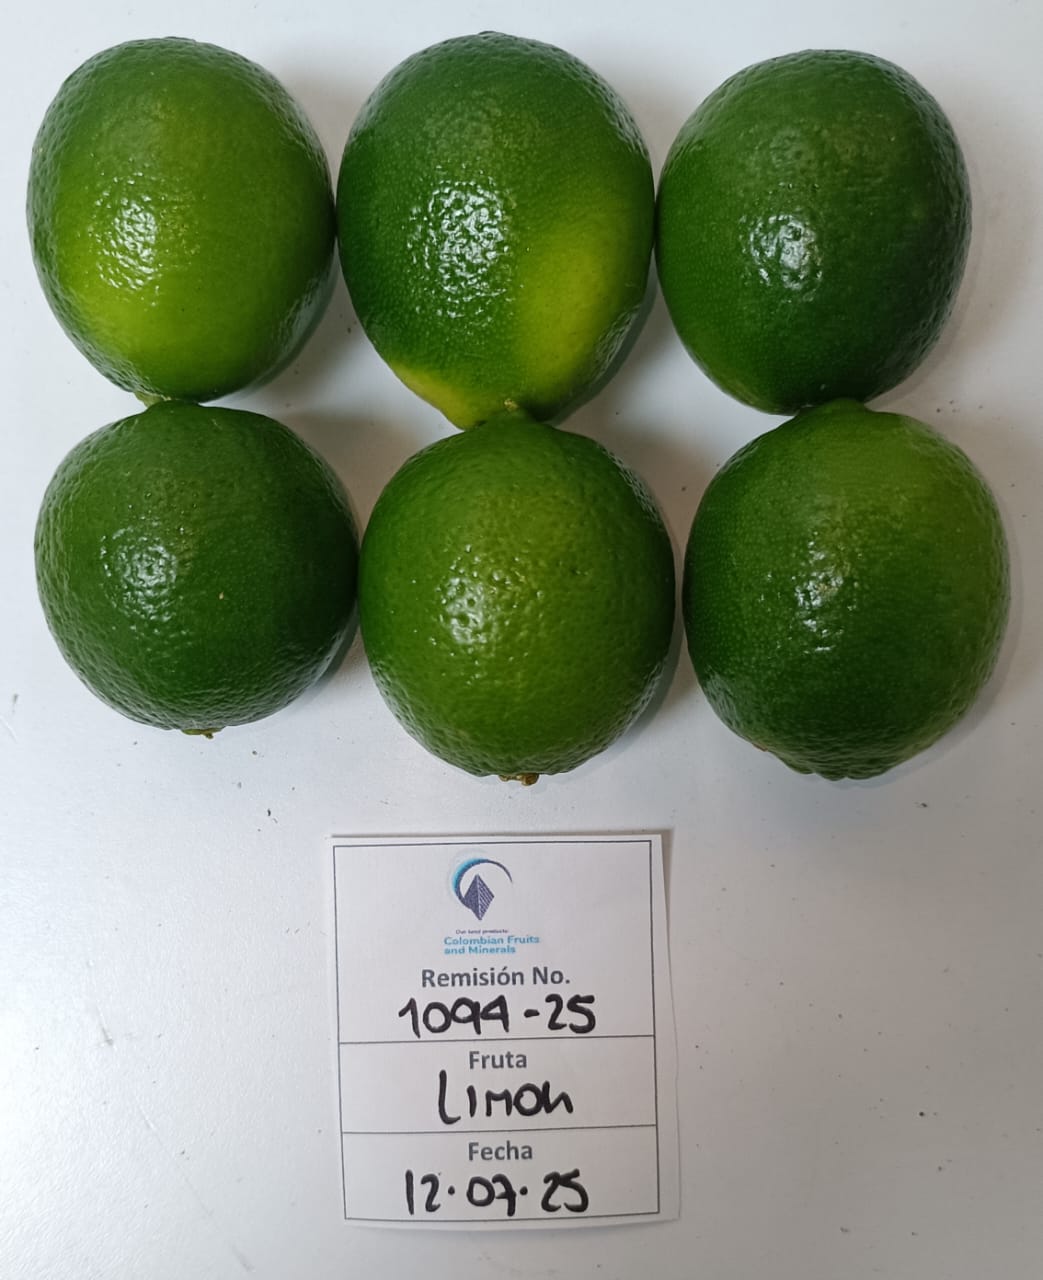 Our land products:
Colombian Fruits
and Minerals
Remisión No.
1094-25
Fruta
LIMON
Fecha
12.07.25